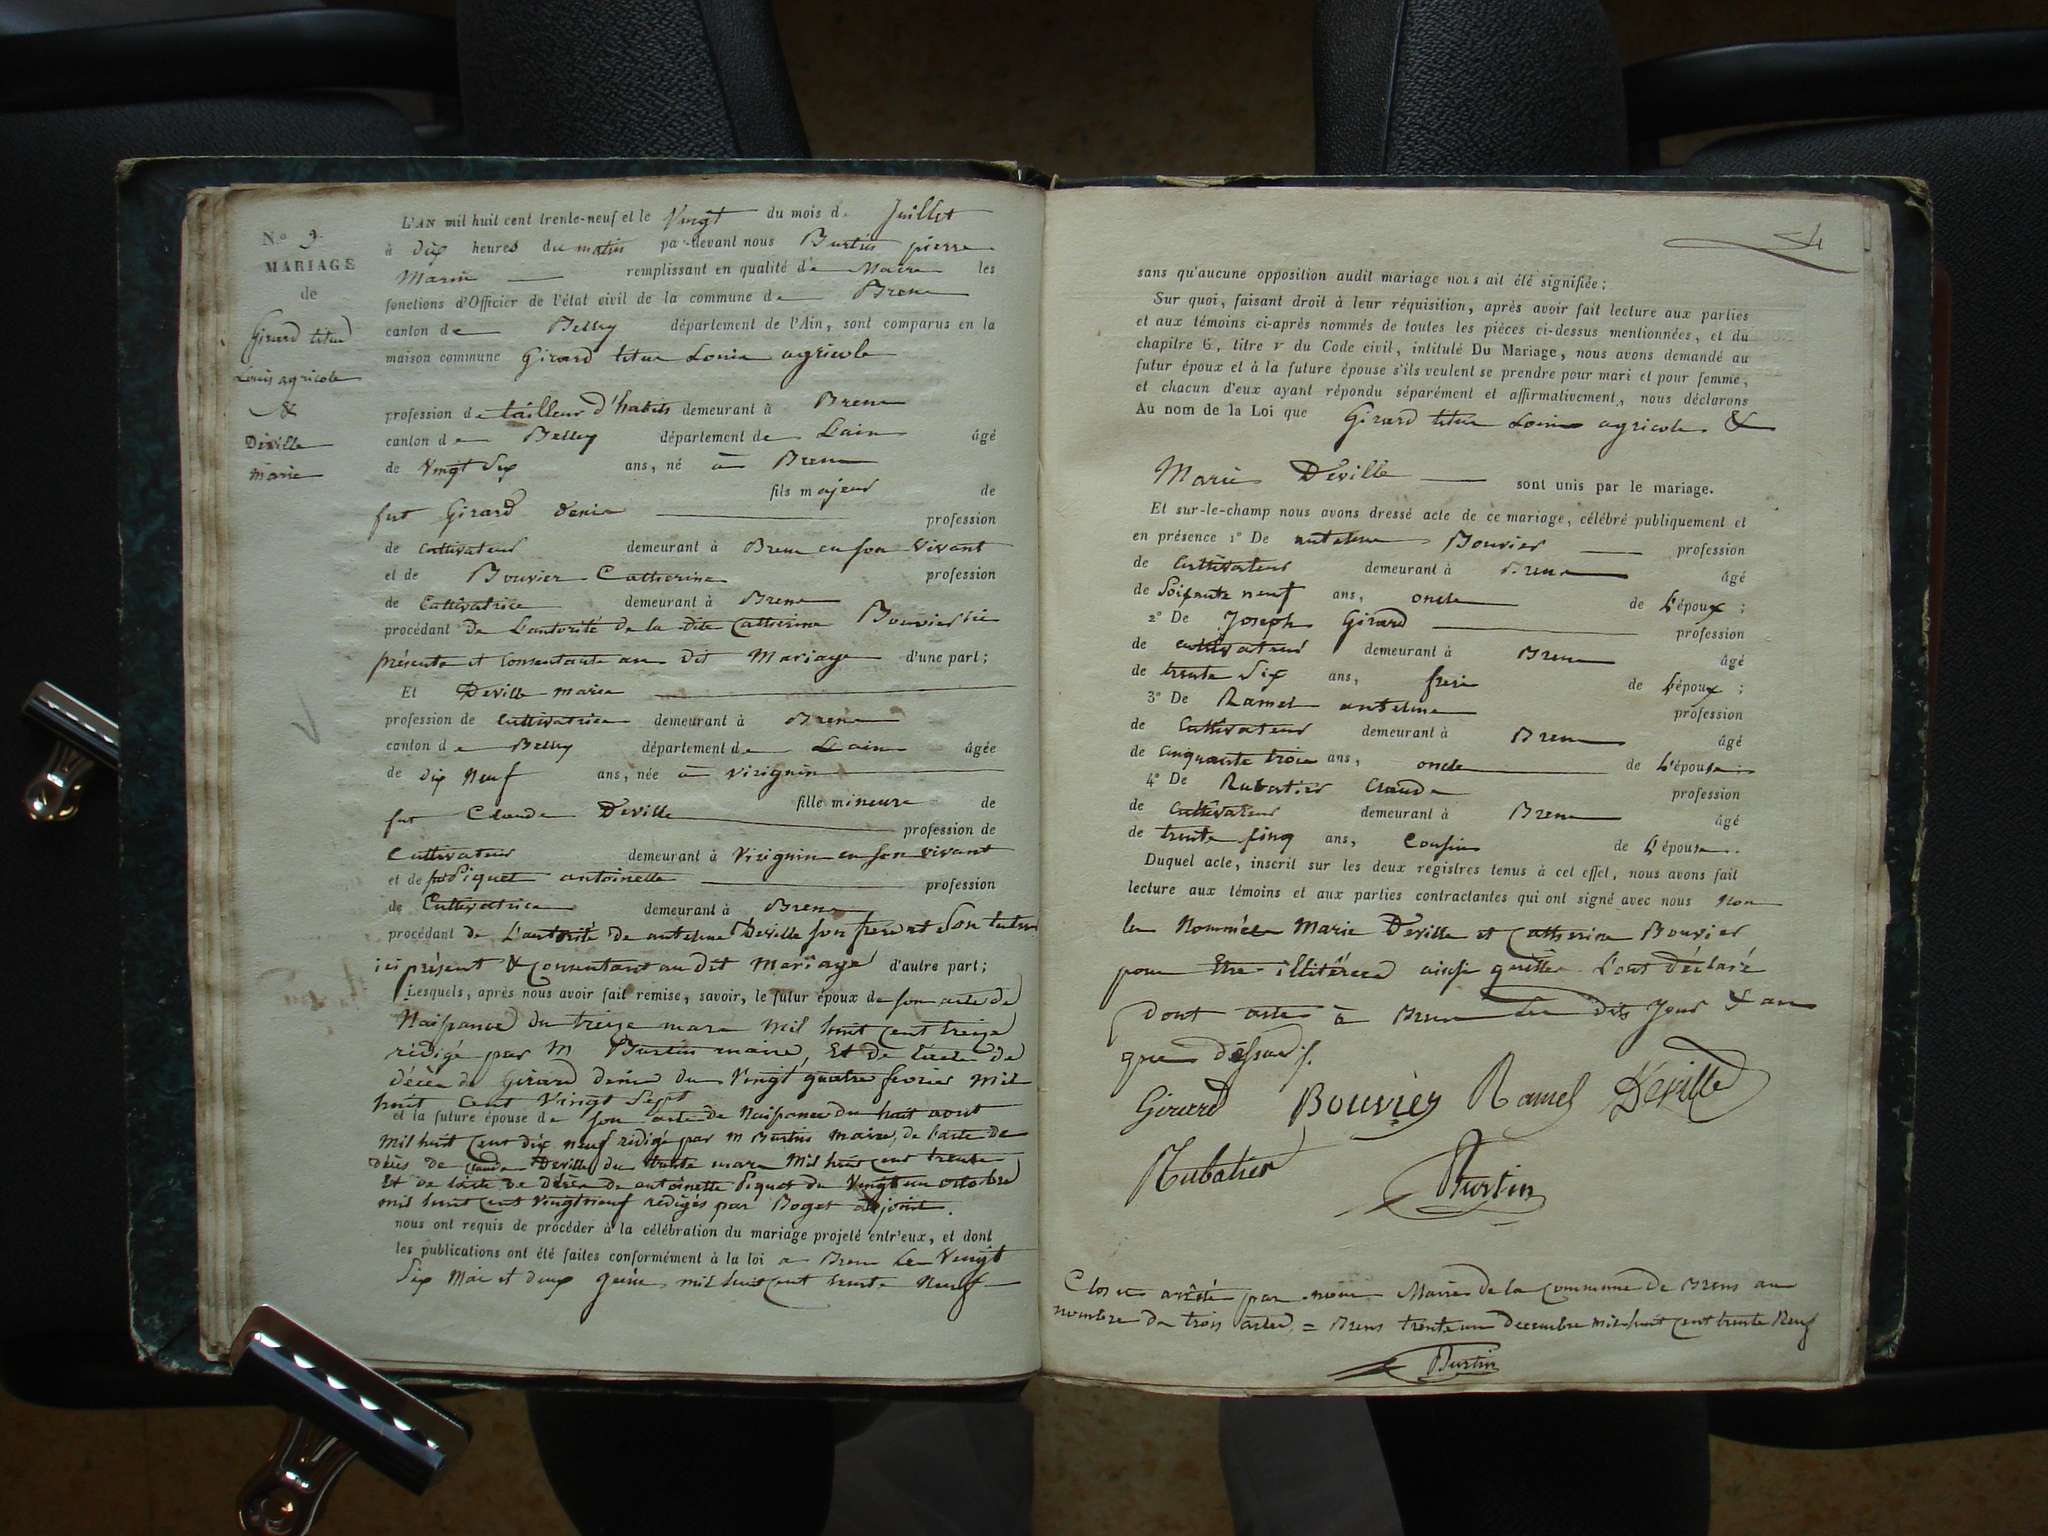 N.º 3.
MARIAGE
de
Girard titus
Louis agricole
&
Déville
marie
L'AN mil huit cent trente-neuf et le Vingt du mois de Juillet
à dix heures du matin par-devant nous Burtin pierre
Marin remplissant en qualité de Maire les
fonctions d'Officier de l'état civil de la commune de Brens
canton de Belley département de l'Ain, sont comparus en la
maison commune Girard titus Louis agricole
profession de tailleur d'habits demeurant à Brens
canton de Belley département de L'ain âgé
de Vingt Six ans, né à Brens
fils majeur de
fut Girard denis profession
de Cultivateur demeurant à Brens en son vivant
et de Bouvier Catherine profession
de Cultivatrice demeurant à Brens
procédant de L'autorité de la dite Catherine Bouvier ici
présente et Consentante au dit Mariage d'une part;
Et Déville marie
profession de Cultivatrice demeurant à Brens
canton de Belley département de L'ain âgée
de dix Neuf ans, née à Virignin
fille mineure de
fut Claude Déville profession de
Cultivateur demeurant à Virignin en son vivant
et de fut Piquet antoinette profession
de Cultivatrice demeurant à Brens
procédant de L'autorité de antelme Déville son frere et Son tuteur
ici présent & Consentant au dit Mariage d'autre part;
Lesquels, après nous avoir fait remise, savoir, le futur époux de son acte de
Naissance du treize mars mil huit Cent treize
rédigé par M Burtin maire, Et de l'acte de
décès de Girard denis du Vingt quatre fevrier mil
huit Cent Vingt Sept
et la future épouse de son acte de Naissance du huit aout
mil huit Cent dix neuf rédigé par M Burtin Maire, de l'acte de
décès de Claude Déville du trente mars mil huit Cent trente
Et de l'acte de décès de antoinette Piquet du Vingt un octobre
mil huit Cent Vingt neuf redigés par Boget adjoint.
nous ont requis de procéder à la célébration du mariage projeté entr'eux, et dont
les publications ont été faites conformément à la loi a Brens Le Vingt
Six Mai et deux juin mil huit Cent trente Neuf
sans qu'aucune opposition audit mariage nous ait été signifiée;
Sur quoi, faisant droit à leur réquisition, après avoir fait lecture aux parties
et aux témoins ci-après nommés de toutes les pièces ci-dessus mentionnées, et du
chapitre 6, titre v du Code civil, intitulé Du Mariage, nous avons demandé au
futur époux et à la future épouse s'ils veulent se prendre pour mari et pour femme,
et chacun d'eux ayant répondu séparément et affirmativement, nous déclarons
Au nom de la Loi que Girard titus Louis agricole &
Marie Déville sont unis par le mariage.
Et sur-le-champ nous avons dressé acte de ce mariage, célébré publiquement et
en présence 1º De antelme Bouvier profession
de Cultivateur demeurant à Brens âgé
de Soixante neuf ans, oncle de L'époux;
2º De Joseph Girard profession
de Cultivateur demeurant à Brens âgé
de trente Six ans, frere de L'époux;
3º De Ramel antelme profession
de Cultivateur demeurant à Brens âgé
de cinquante trois ans, oncle de L'épouse
4º De Rubatier Claude profession
de Cultivateur demeurant à Brens âgé
de trente Cinq ans, Cousin de L'épouse.
Duquel acte, inscrit sur les deux registres tenus à cet effet, nous avons fait
lecture aux témoins et aux parties contractantes qui ont signé avec nous Non
les Nommées Marie Déville et Catherine Bouvier
pour Etre illitérées ainsi qu'elles L'ont déclaré
Dont acte à Brens les dits Jour & an
que déssus.
Girard Bouvier Ramel Déville
Rubatier Burtin
Clos et arrêté par nous Maire de la Commune de Brens au
nombre de trois actes = Brens trente un Decembre mil huit Cent trente Neuf
Burtin